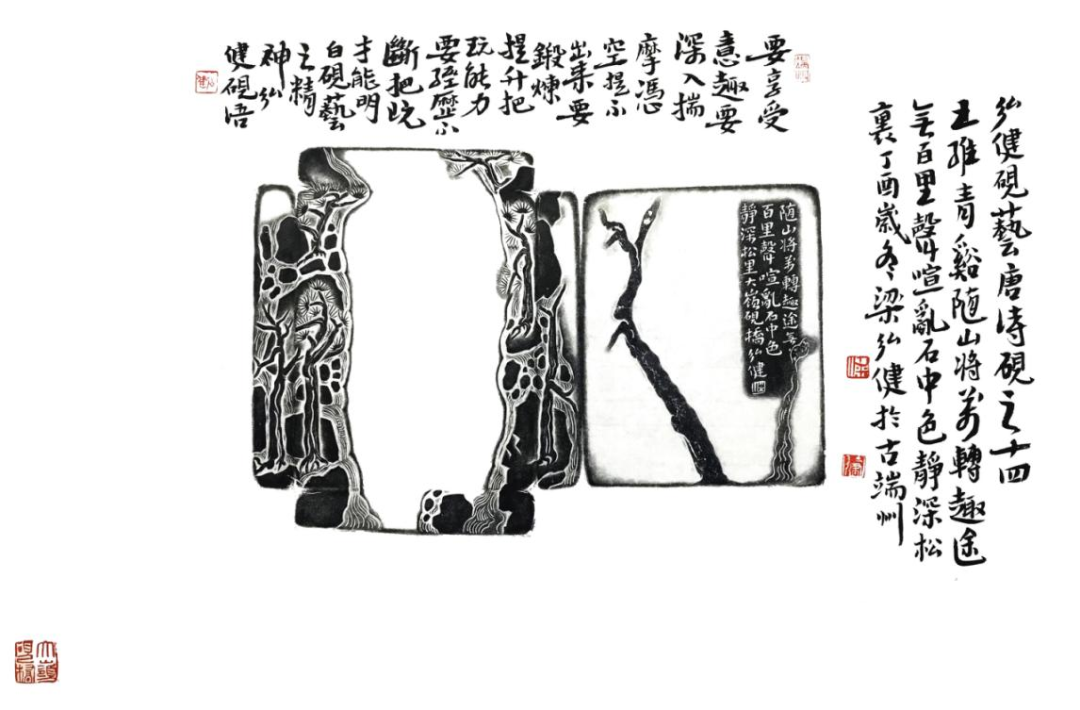 要享受
意趣要
深入揣
摩憑
空提不
出来要
鍛煉
提升把
玩能力
要經歷不
斷把玩
才能明
白硯藝
之精
神弘
健硯语
弘健硯藝唐诗硯之十四
王維青谿随山将萬轉趣途
無百里聲喧亂石中色靜深松
裏丁酉歲冬梁弘健於古端州
随山将萬轉趣途無
百里聲喧亂石中色
靜深松里大嶺硯橋弘健
大嶺
硯橋